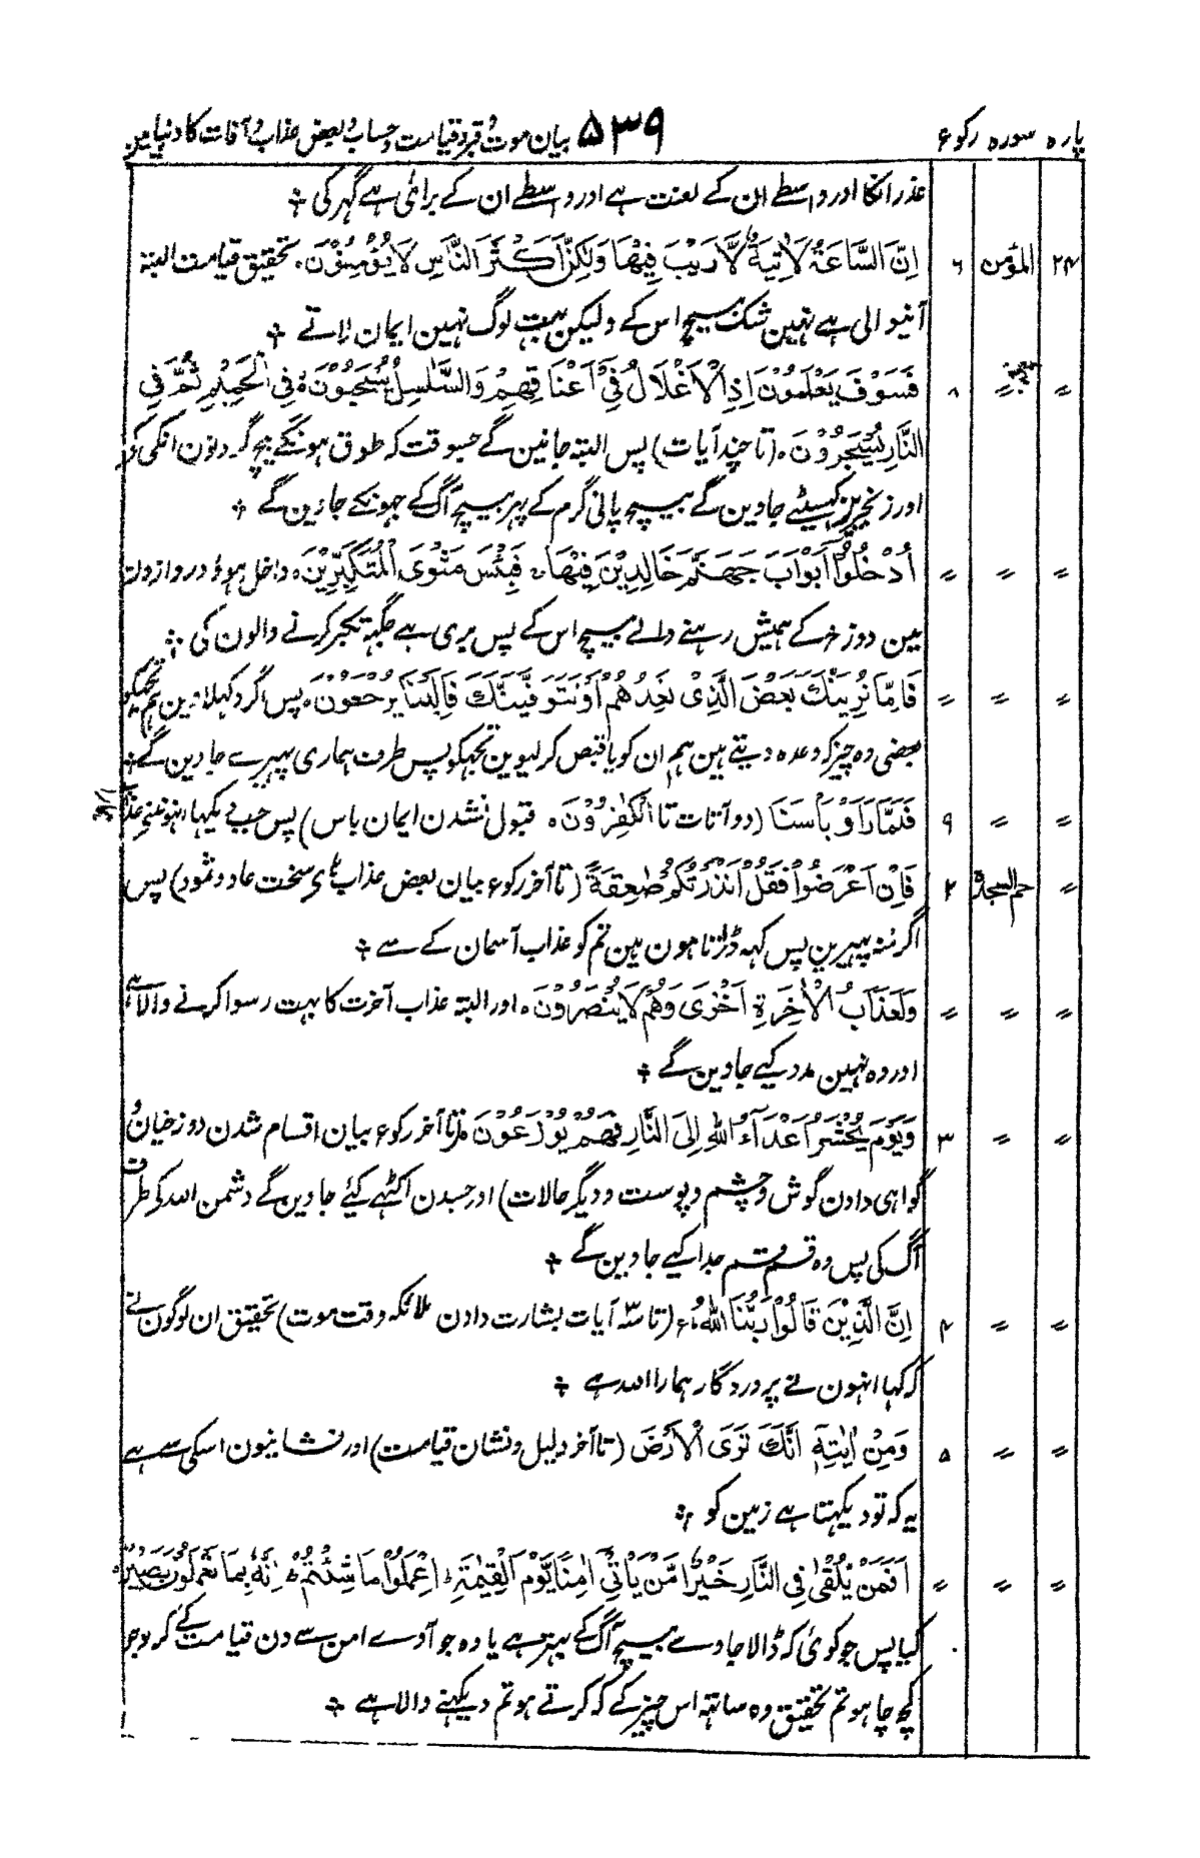 پارہ سورہ رکوع ۵۳۹ بیان موت و قبر و قیامت و حساب و بعض عذاب و آفات کا دنیا مین
عذر انکا اور واسطے ان کے لعنت ہے اور واسطے ان کے برائی ہے گہر کی ÷
۲۴ المؤمن ۶ اِنَّ السَّاعَةَ لَاٰتِيَةٌ لَّا رَيْبَ فِيْهَا وَلٰكِنَّ اَكْثَرَ النَّاسِ لَا يُؤْمِنُوْنَ۔ تحقیق قیامت البتہ
آنیوالی ہے نہین شک بیچ اس کے ولیکن بہت لوگ نہین ایمان لاتے ÷
〃 〃 ۸ فَسَوْفَ يَعْلَمُوْنَ اِذِ الْاَغْلَالُ فِيْٓ اَعْنَاقِهِمْ وَالسَّلٰسِلُ يُسْحَبُوْنَ ۙ فِي الْحَمِيْمِ ثُمَّ فِي
النَّارِ يُسْجَرُوْنَ۔ (تا چند آیات) پس البتہ جانین گے جسوقت کہ طوق ہونگے بیچ گردنون انکی کے
اور زنجیرین گہسیٹے جاوین گے بیچ پانی گرم کے پہر بیچ آگ کے جہونکے جاوین گے ÷
〃 〃 〃 اُدْخُلُوْٓا اَبْوَابَ جَهَنَّمَ خَالِدِيْنَ فِيْهَا۔ فَبِئْسَ مَثْوَى الْمُتَكَبِّرِيْنَ۔ داخل ہوؤ دروازون
مین دوزخ کے ہمیش رہنے والے بیچ اس کے پس بری ہے جگہہ تکبر کرنے والون کی ÷
〃 〃 〃 فَاِمَّا نُرِيَنَّكَ بَعْضَ الَّذِيْ نَعِدُهُمْ اَوْ نَتَوَفَّيَنَّكَ فَاِلَيْنَا يُرْجَعُوْنَ۔ پس اگر دکہلاوین ہم تجہکو
بعضی وہ چیز کہ وعدہ دیتے ہین ہم ان کو یا قبض کر لیوین تجہکو پس طرف ہماری پہیرے جاوین گے ÷
〃 〃 ۹ فَلَمَّا رَاَوْ بَاْسَنَا (دو آیات تا الْكٰفِرُوْنَ۔ قبول نشدن ایمان باس) پس جب دیکہا انہون نے عذاب ہمارا
〃 حم السجدہ ۲ فَاِنْ اَعْرَضُوْا فَقُلْ اَنْذَرْتُكُمْ صٰعِقَةً (تا آخر رکوع بیان بعض عذاب ہای سخت عاد و ثمود) پس
اگر منہ پہیرین پس کہہ ڈراتا ہون مین تم کو عذاب آسمان کے سے ÷
〃 〃 〃 وَلَعَذَابُ الْاٰخِرَةِ اَخْزٰى وَهُمْ لَا يُنْصَرُوْنَ۔ اور البتہ عذاب آخرت کا بہت رسوا کرنے والا ہے
اور وہ نہین مدد کیے جاوین گے ÷
〃 〃 ۳ وَيَوْمَ يُحْشَرُ اَعْدَآءُ اللّٰهِ اِلَى النَّارِ فَهُمْ يُوْزَعُوْنَ (تا آخر رکوع بیان اقسام شدن دوزخیان و
گواہی دادن گوش و چشم و پوست و دیگر حالات) اور جسدن اکٹہے کیئے جاوین گے دشمن اللہ کے طرف
آگ کی پس وہ قسم قسم جدا کیے جاوین گے ÷
〃 〃 ۴ اِنَّ الَّذِيْنَ قَالُوْا رَبُّنَا اللّٰهُ (تا ۳ آیات بشارت دادن ملائکہ وقت موت) تحقیق ان لوگون نے
کہ کہا انہون نے پروردگار ہمارا اللہ ہے ÷
〃 〃 ۵ وَمِنْ اٰيٰتِهٖٓ اَنَّكَ تَرَى الْاَرْضَ (تا آخر دلیل و نشان قیامت) اور نشانیون اسکی سے ہے
یہ کہ تو دیکہتا ہے زمین کو ÷
〃 〃 〃 اَفَمَنْ يُّلْقٰى فِي النَّارِ خَيْرٌ اَمْ مَّنْ يَّاْتِيْٓ اٰمِنًا يَّوْمَ الْقِيٰمَةِ ؕ اِعْمَلُوْا مَا شِئْتُمْ ؕ اِنَّهٗ بِمَا تَعْمَلُوْنَ بَصِيْرٌ
کیا پس جو کوئ کہ ڈالا جاوے بیچ آگ کے بہتر ہے یا وہ جو آوے امن سے دن قیامت کے کرو جو
کچھ چاہو تم تحقیق وہ ساتہہ اس چیز کے کہ کرتے ہو تم دیکہنے والا ہے ÷